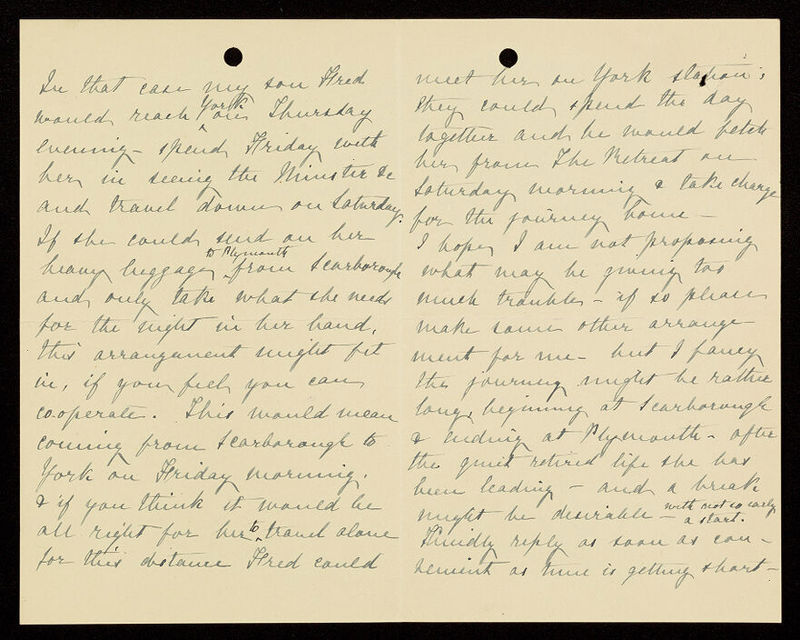 In that case my son Fred
would reach York on Thursday
evening – spend Friday with
her in seeing the Minster &c
and travel down on Saturday.
If she could send on her
heavy luggage to Plymouth from Scarborough
and only take what she needs
for the night in her hand,
this arrangement might fit
in, if you feel you can
cooperate. This would mean
coming from Scarborough to
York on Friday morning,
& if you think it would be
all right for her to travel alone
for this distance Fred could
meet her on York station;
they could spend the day
together and he would fetch
her from The Retreat on
Saturday morning & take charge
for the journey home –
I hope I am not proposing
what may be giving too
much trouble – if so please
make some other arrange-
ment for me – but I fancy
the journey might be rather
long, beginning at Scarborough
& ending at Plymouth – after
the quiet retired life she has
been leading – and a break
might be desirable – with not so early a start.
Kindly reply as soon as con-
venient as time is getting short –